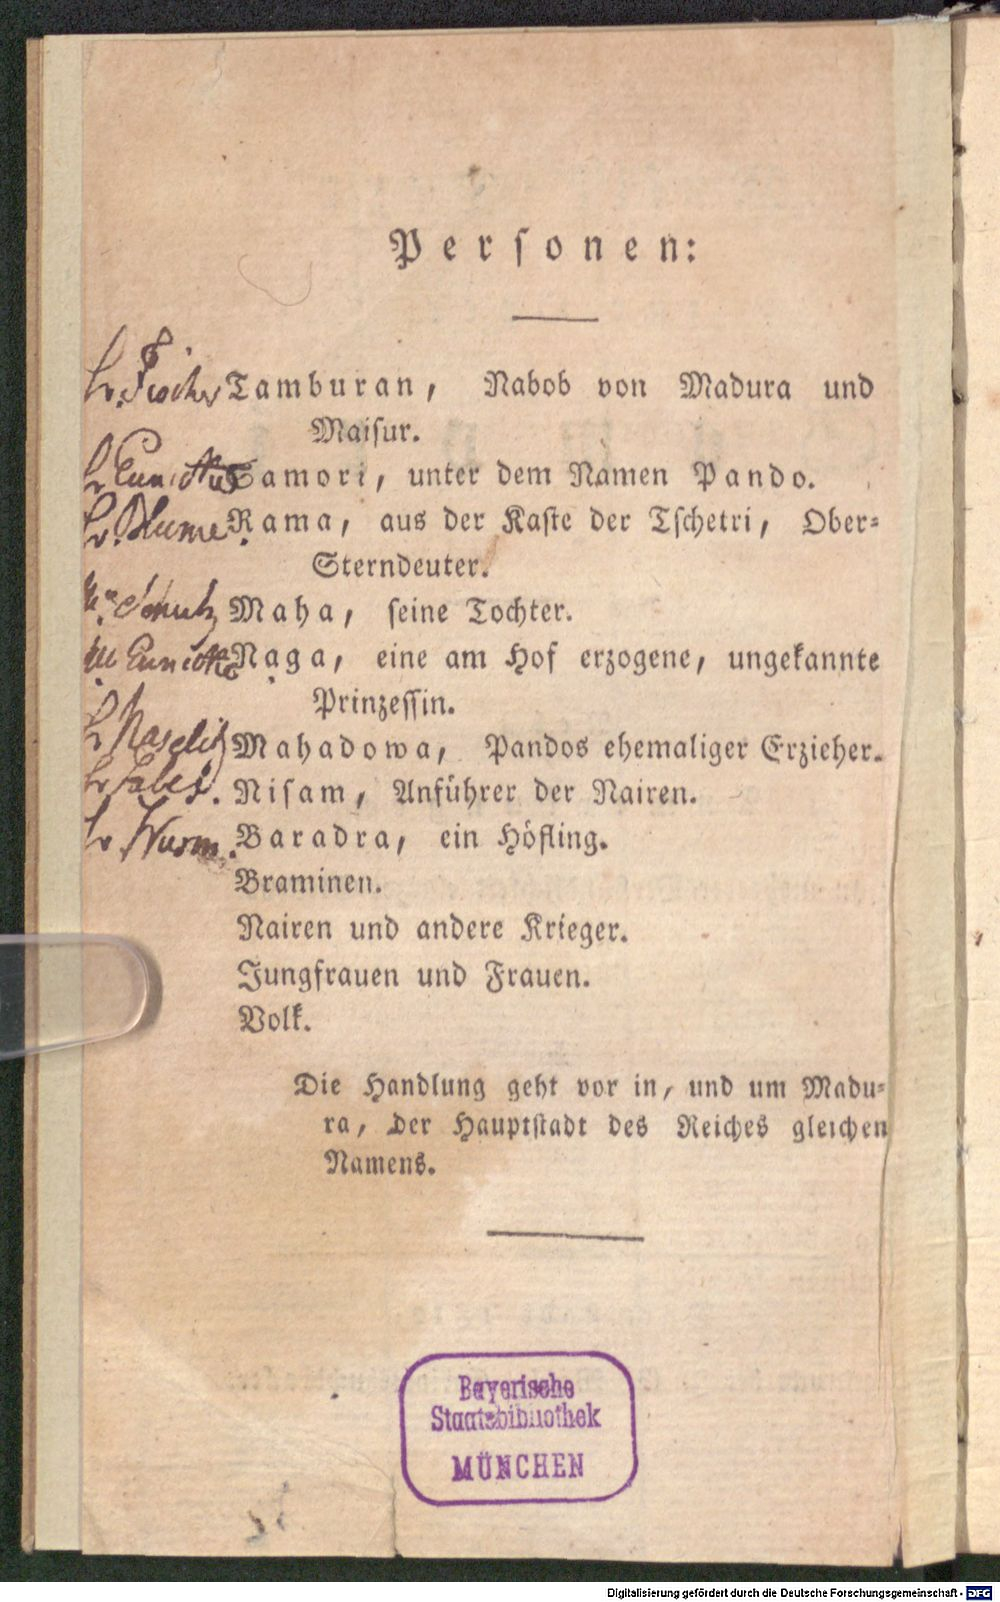 Personen:
Hr. Fischer Tamburan, Nabob von Madura und
Maisur.
Hr Eunicke Samori, unter dem Namen Pando.
Hr. Blume. Rama, aus der Kaste der Tschetri, Ober-
Sterndeuter.
Maha, seine Tochter.
Eunicke Naga, eine am Hof erzogene, ungekannte
Prinzessin.
Hr Mahadowa, Pandos ehemaliger Erzieher.
Hr Nisam, Anführer der Nairen.
Hr Wurm. Baradra, ein Höfling.
Braminen.
Nairen und andere Krieger.
Jungfrauen und Frauen.
Volk.
Die Handlung geht vor in, und um Madu-
ra, der Hauptstadt des Reiches gleichen
Namens.
Bayerische
Staatsbibliothek
MÜNCHEN
Digitalisierung gefördert durch die Deutsche Forschungsgemeinschaft - DFG